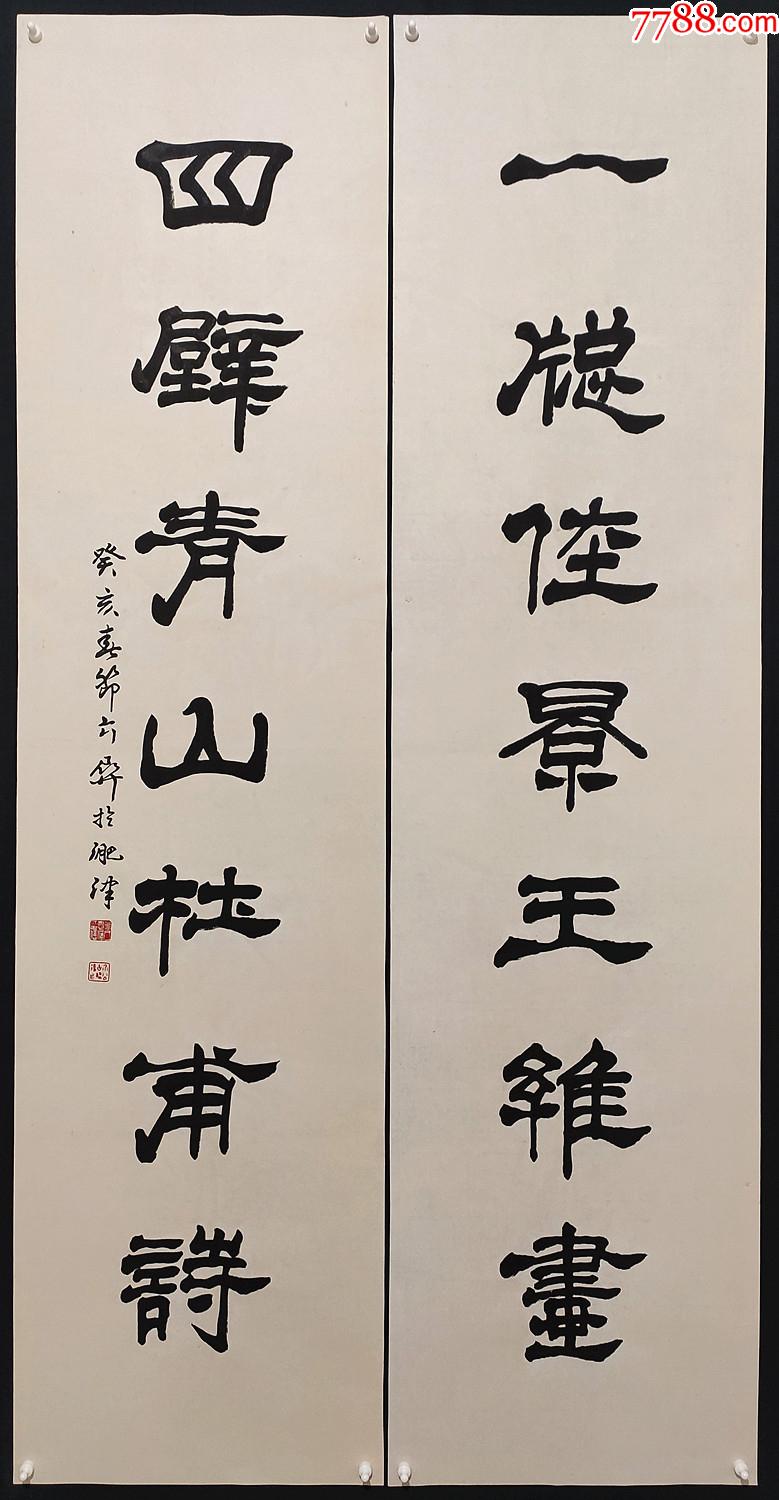 7788.com
一牕佳景王維畫
四壁青山杜甫詩
癸亥春節六驛於肥津